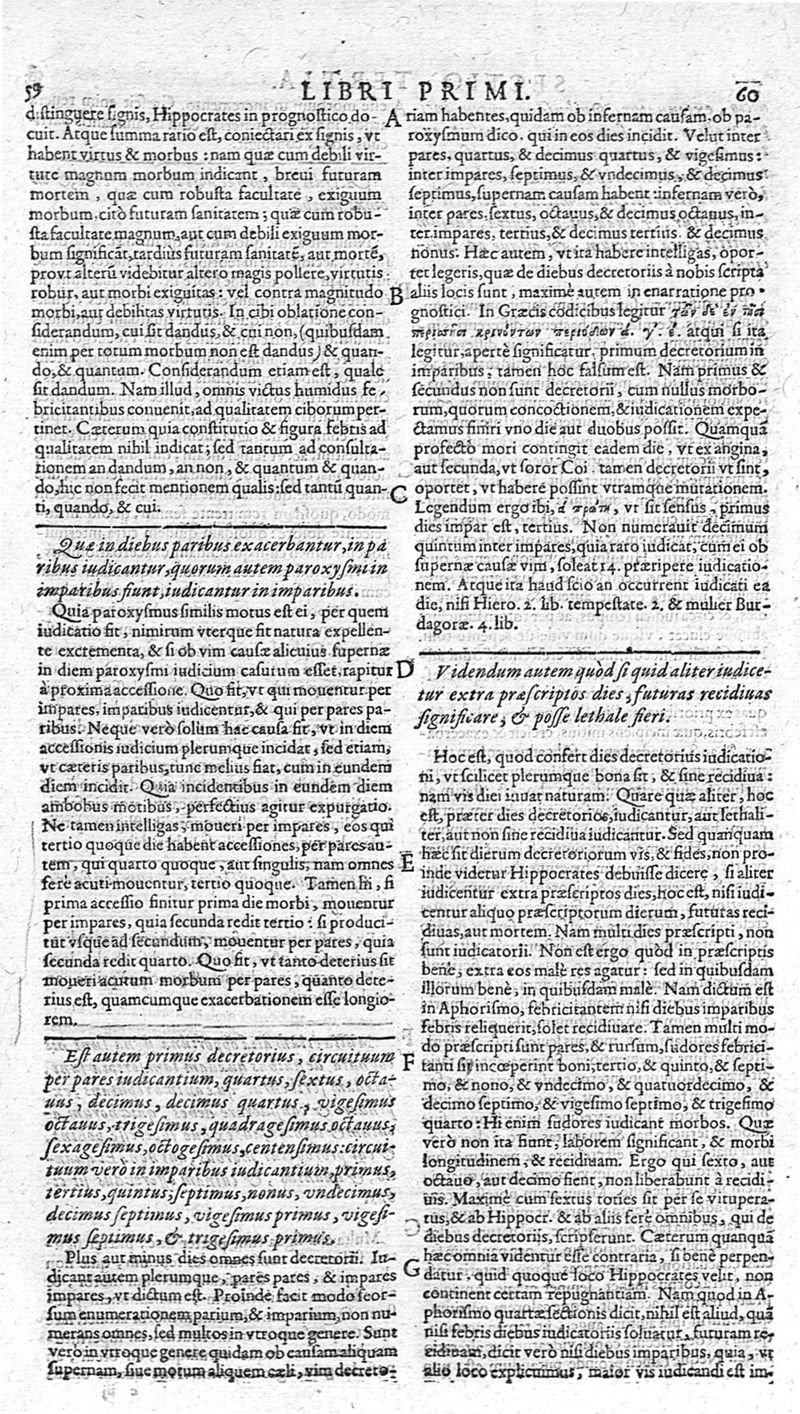 59
LIBRI PRIMI.
60
distinguere signis, Hippocrates in prognostico do-
cuit. Atque summa ratio est, coniectari ex signis, vt
habent virtus & morbus : nam quæ cum debili vir-
tute magnum morbum indicant, breui futuram
mortem, quæ cum robusta facultate, exiguum
morbum, citò futuram sanitatem; quæ cum robu-
sta facultate magnum, aut cum debili exiguum mor-
bum significāt, tardius futuram sanitatē, aut mortē,
prout alterū videbitur altero magis pollere, virtutis
robur, aut morbi exiguitas: vel contra magnitudo
morbi, aut debilitas virtutis. In cibi oblatione con-
siderandum, cui sit dandus, & cui non, (quibusdam
enim per totum morbum non est dandus) & quan-
do, & quantum. Considerandum etiam est, quale
sit dandum. Nam illud, omnis victus humidus fe-
bricitantibus conuenit, ad qualitatem ciborum per-
tinet. Cæterum quia constitutio & figura febris ad
qualitatem nihil indicat; sed tantum ad consulta-
tionem an dandum, an non, & quantum & quan-
do, hîc non fecit mentionem qualis: sed tantū quan-
ti, quando, & cui.
Quæ in diebus paribus exacerbantur, in pa
ribus iudicantur, quorum autem paroxysmi in
imparibus fiunt, iudicantur in imparibus.
Quia paroxysmus similis motus est ei, per quem
iudicatio fit, nimirum vterque fit natura expellen-
te excrementa, & si ob vim causæ alicuius supernæ
in diem paroxysmi iudicium casurum esset, rapitur
à proxima accessione. Quo fit, vt qui mouentur per
impares, imparibus iudicentur, & qui per pares pa-
ribus. Neque verò solùm hac causa fit, vt in diem
accessionis iudicium plerumque incidat, sed etiam,
vt cæteris paribus, tunc melius fiat, cum in eundem
diem incidit. Quia incidentibus in eundem diem
ambobus motibus, perfectius agitur expurgatio.
Ne tamen intelligas, moueri per impares, eos qui
tertio quoque die habent accessiones, per pares au-
tem, qui quarto quoque, aut singulis, nam omnes
ferè acuti mouentur, tertio quoque. Tamen hi, si
prima accessio finitur prima die morbi, mouentur
per impares, quia secunda redit tertio : si produci-
tur vsque ad secundum, mouentur per pares, quia
secunda redit quarto. Quo fit, vt tanto deterius sit
moueri acutum morbum per pares, quanto dete-
rius est, quamcumque exacerbationem esse longio-
rem.
Est autem primus decretorius, circuituum
per pares iudicantium, quartus, sextus, octa-
uus, decimus, decimus quartus, vigesimus
octauus, trigesimus, quadragesimus octauus,
sexagesimus, octogesimus, centensimus: circui-
tuum verò in imparibus iudicantium, primus,
tertius, quintus, septimus, nonus, vndecimus,
decimus septimus, vigesimus primus, vigesi-
mus septimus, & trigesimus primus.
Plus aut minus dies omnes sunt decretorii. Iu-
dicant autem plerumque, pares pares, & impares
impares, vt dictum est. Proinde facit modo seor-
sum enumerationem parium, & imparium, non nu-
merans omnes, sed multos in vtroque genere. Sunt
verò in vtroque genere quidam ob causam aliquam
supernam, siue motum aliquem cæli, vim decreto-
A
B
C
D
E
F
G
riam habentes, quidam ob infernam causam, ob pa-
roxysmum dico, qui in eos dies incidit. Velut inter
pares, quartus, & decimus quartus, & vigesimus:
inter impares, septimus, & vndecimus, & decimus
septimus, supernam causam habent: infernam verò,
inter pares, sextus, octauus, & decimus octauus, in-
ter impares, tertius, & decimus tertius, & decimus
nonus. Hæc autem, vt ita habere intelligas, opor-
tet legeris, quæ de diebus decretoriis à nobis scripta
aliis locis sunt, maximè autem in enarratione pro-
gnostici. In Græcis codicibus legitur τῶν δὲ ἐν τῇσι
περισσῇσι κρινόντων περιόδων α. γ. ε. atqui si ita
legitur, apertè significatur, primum decretorium in
imparibus, tamen hoc falsum est. Nam primus &
secundus non sunt decretorii, cum nullus morbo-
rum, quorum concoctionem, & iudicationem expe-
ctamus finiri vno die aut duobus possit. Quamquā
profecto mori contingit eadem die, vt ex angina,
aut secunda, vt soror Coi. tamen decretorii vt sint,
oportet, vt habere possint vtramque mutationem.
Legendum ergo ibi, α πρώτη, vt sit sensus, primus
dies impar est, tertius. Non numerauit decimum
quintum inter impares, quia raro iudicat, cum ei ob
supernæ causæ vim, soleat 14. præripere iudicatio-
nem. Atque ita haud scio an occurrent iudicati ea
die, nisi Hiero. 2. lib. tempestate. 2, & mulier Bur-
dagoræ. 4. lib.
Videndum autem quòd si quid aliter iudice-
tur extra præscriptos dies, futuras recidiuas
significare, & posse lethale fieri.
Hoc est, quod confert dies decretorius iudicatio-
ni, vt scilicet plerumque bona sit, & sine recidiua:
nam vis diei iuuat naturam. Quare quæ aliter, hoc
est, præter dies decretorios, iudicantur, aut lethali-
ter, aut non sine recidiua iudicantur. Sed quanquam
hæc sit dierum decretoriorum vis, & fides, non pro-
inde videtur Hippocrates debuisse dicere, si aliter
iudicentur extra præscriptos dies, hoc est, nisi iudi-
centur aliquo præscriptorum dierum, futuras reci-
diuas, aut mortem. Nam multi dies præscripti, non
sunt iudicatorii. Non est ergo quòd in præscriptis
benè, extra eos malè res agatur: sed in quibusdam
illorum benè, in quibusdam malè. Nam dictum est
in Aphorismo, febricitantem nisi diebus imparibus
febris reliquerit, solet recidiuare. Tamen multi mo-
do præscripti sunt pares, & rursum, sudores febrici-
tanti si inceperint boni, tertio, & quinto, & septi-
mo, & nono, & vndecimo, & quatuordecimo, &
decimo septimo, & vigesimo septimo, & trigesimo
quarto: Hi enim sudores iudicant morbos. Quæ
verò non ita fiunt, laborem significant, & morbi
longitudinem, & recidiuam. Ergo qui sexto, aut
octauo, aut decimo fient, non liberabunt à recidi-
uis. Maximè cum sextus toties sit per se vitupera-
tus, & ab Hippocr. & ab aliis ferè omnibus, qui de
diebus decretoriis, scripserunt. Cæterum quanquā
hæc omnia videntur esse contraria, si benè perpen-
datur, quid quoque loco Hippocrates velit, non
continent certam repugnantiam. Nam quod in A-
phorismo quartæ sectionis dicit, nihil est aliud, quā
nisi febris diebus iudicatoriis soluatur, futuram re-
cidiuam, dicit verò nisi diebus imparibus, quia, vt
alio loco explicuimus, maior vis iudicandi est im-